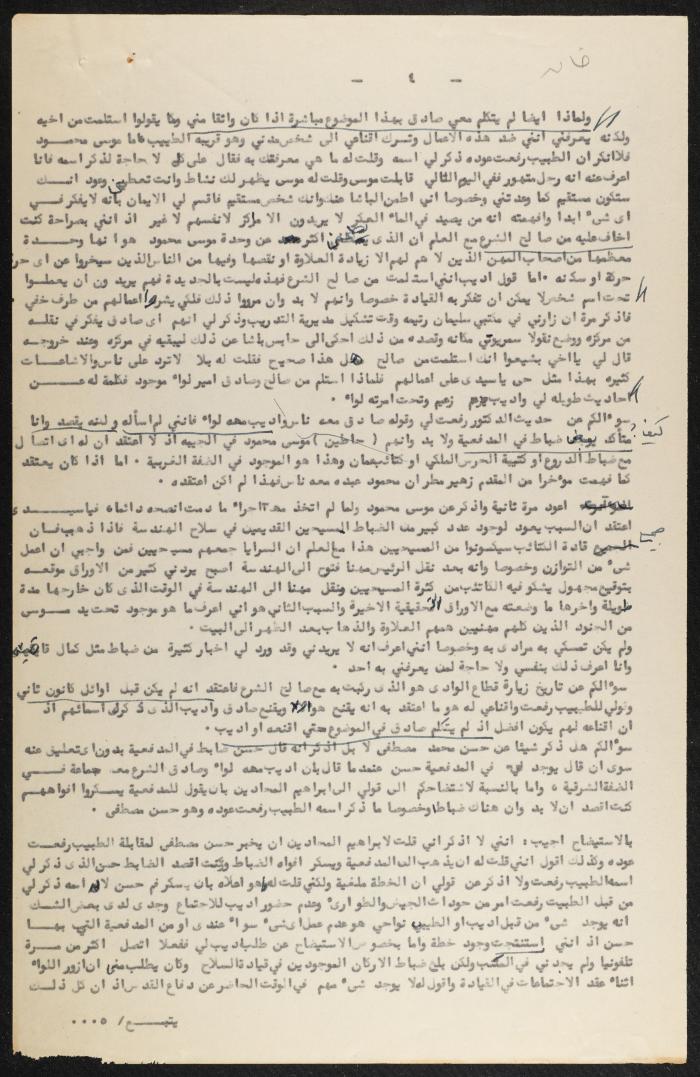 خاله
- ٤ -
ولماذا ايضا لم يتكلم معي صادق بهذا الموضوع مباشرة اذا كان واثقا مني وكما يقولوا استلمت من اخيه
ولكنه يعرفني انني ضد هذه الاعمال وتسرك اقناعي الى شخص مدني وهو قريبه الطبيب فاما موسى محمود
فلا انكر ان الطبيب رفعت عوده ذكر لي اسمه وقلت له ما هي معرفتك به فقال على كل لا حاجة لذكر اسمه فانا
اعرف عنه انه رجل متهور ففي اليوم التالي قابلت موسى وقلت له موسى يظهر لك نشاط وانت تعطيني وعود انك
ستكون مستقيم كما وعدتني وخصوصا اني اطمن الباشا عنك وانك شخص مستقيم فاقسم لي الايمان بأنه لا يفكر في
اى شيء ابدا وافهمته انه من يصيد في الماء العكر لا يريدون الا مراكز لانفسهم لا غير اذ انني بصراحة كنت
اخاف عليه من صالح الشرع مع العلم ان الذى اكثر عن وحدة موسى محمود هو انها وحدة
معظمها من اصحاب المهن الذين لا هم لهم الا زيادة العلاوة او نقصها وفيها من الناس الذين سيخروا عن اى حركة
حركة او سكنه اما قول اديب انني استلمت من صالح الشرع فهذه ليست بالجديدة فهم يريدون ان يعطوا
تحت اسم شخص لا يمكن ان تفكر به القيادة خصوصا وانهم لا بد وان مرروا ذلك فلكي يشرعوا اعمالهم من طرف خفي
فاذكر مرة ان زارني في مكتبي سليمان رتيمه وقت تشكيل مديرية التدريب وذكر لي انهم اى صادق يفكر في نقله
من مركزه ووضع نقولا سمريوتي مكانه وقصده من ذلك احكى الى حابس باشا عن ذلك ليبقيه في مركزه وعند خروجه
قال لي يا اخي بشيعوا انك استلمت من صالح هل هذا صحيح فقلت له بلا لا ترد على ناس والاشاعات
كثيره بهذا مثل حى يا سيدى على اعمالهم فلماذا استلم من صالح وصادق امير لواء موجود فكلمة له عن
احاديث طويله لي واديب زعيم وتحت امرته لواء
سؤالكم عن حديث الدكتور رفعت لي وقوله صادق معه ناس واديب معه لواء فانني لم اسأله ولكنه يقصد وانا
كيف؟
متأكد بوجود ضباط في المدفعية ولا بد وانهم (حاطين) موسى محمود في الجيبه اذ لا اعتقد ان له اى اتصال
مع ضباط الدروع او كتيبة الحرس الملكي او كتائب عمان وهذا هو الموجود في الضفة الغربية اما اذا كان يعتقد
كما فهمت مؤخرا من المقدم زهير مطر ان محمود عبده معه ناس فهذا لم اكن اعتقده
اعود مرة ثانية واذكر عن موسى محمود ولما لم اتخذ معه اجراء ما دمت انصحه دائما فيا سيدى
اعتقد ان السبب يعود لوجود عدد كبير من الضباط المسيحيين القديمين في سلاح الهندسة فاذا ذهب فان
جميع قادة الكتائب سيكونوا من المسيحيين هذا مع العلم ان السرايا جمعهم مسيحيين فمن واجبي ان اعمل
شيء من التوازن وخصوصا وانه بعد نقل الرئيس مهنا فتوح الى الهندسة اصبح يردني كثير من الاوراق موقعه
بتوقيع مجهول يشكو فيه الكاتب من كثرة المسيحيين ونقل مهنا الى الهندسة في الوقت الذى كان خارجها مدة
طويلة واخرها ما وضعته مع الاوراق التحقيقية الاخيرة والسبب الثاني هو اني اعرف ما هو موجود تحت يد موسى
من الجنود الذين كلهم مهنيين همهم العلاوة والذهاب بعد الظهر الى البيت
ولم يكن تمسكي به مرادى به وخصوصا انني اعرف انه لا يريدني وقد ورد لي اخبار كثيرة من ضباط مثل كمال
وانا اعرف ذلك بنفسي ولا حاجة لمن يعرفني به احد
سؤالكم عن تاريخ زيارة قطاع الوادى هو الذى رتبت به مع صالح الشرع فاعتقد انه لم يكن قبل اوائل كانون ثاني
وقولي للطبيب رفعت واقناعي له هو ما اعتقد به انه يقنع هوالاء ويقنع صادق واديب الذى ذكرك اسمائهم اذ
ان اقناعه لهم يكون افضل اذ لم يتكلم صادق في الموضوع حتى اقنعه او اديب
سؤالكم هل ذكر شيئا عن حسن محمد مصطفى لا بل اذكر انه قال حسن ضابط في المدفعية بدون اى تعليق عنه
سوى ان قال يوجد في المدفعية حسن عندما قال بان اديب معه لواء وصادق الشرع معه جماعة في
الضفة الشرقية واما بالنسبة لاستضاحكم الى قولي الى ابراهيم المحادين بان يقول للمدفعية يسكروا افواههم
كنت اقصد ان لا بد وان هناك ضباط وخصوصا ما ذكر اسمه الطبيب رفعت عوده وهو حسن مصطفى
بالاستيضاح اجيب: انني لا اذكر اني قلت لابراهيم المحادين ان يخبر حسن مصطفى لمقابلة الطبيب رفعت
عوده ولذلك اقول انني قلت له ان يذهب الى المدفعية ويسكر افواه الضباط وكنت اقصد الضابط حسن الذى ذكر لي
اسمه الطبيب رفعت ولا اذكر عن قولي ان الخطة ملغية ولكني قلت له هو اعلاه بان يسكر فم حسن لانه اسمه ذكر لي
من قبل الطبيب رفعت امر من حوادث الجيش والطوارىء وعدم حضور اديب للاجتماع وجدى لدى بعض الشك
انه يوجد شيء من قبل اديب او الطبيب نواحي هو عدم عمل اى شيء سواء عندى او من المدفعية التي بها
حسن اذ انني استنتجت وجود خطة واما بخصوص الاستيضاح عن طلب اديب لي ففعلا اتصل اكثر من مرة
تلفونيا ولم يجدني في المكتب ولكن بلغ ضباط الاركان الموجودين في قيادة السلاح وكان يطلب مني ان ازور اللواء
اثناء عقد الاجتماعات في القيادة واقول له لا يوجد شيء مهم في الوقت الحاضر عن دفاع القدس اذ ان كل ذلك
يتبع / ٥٠٠٠